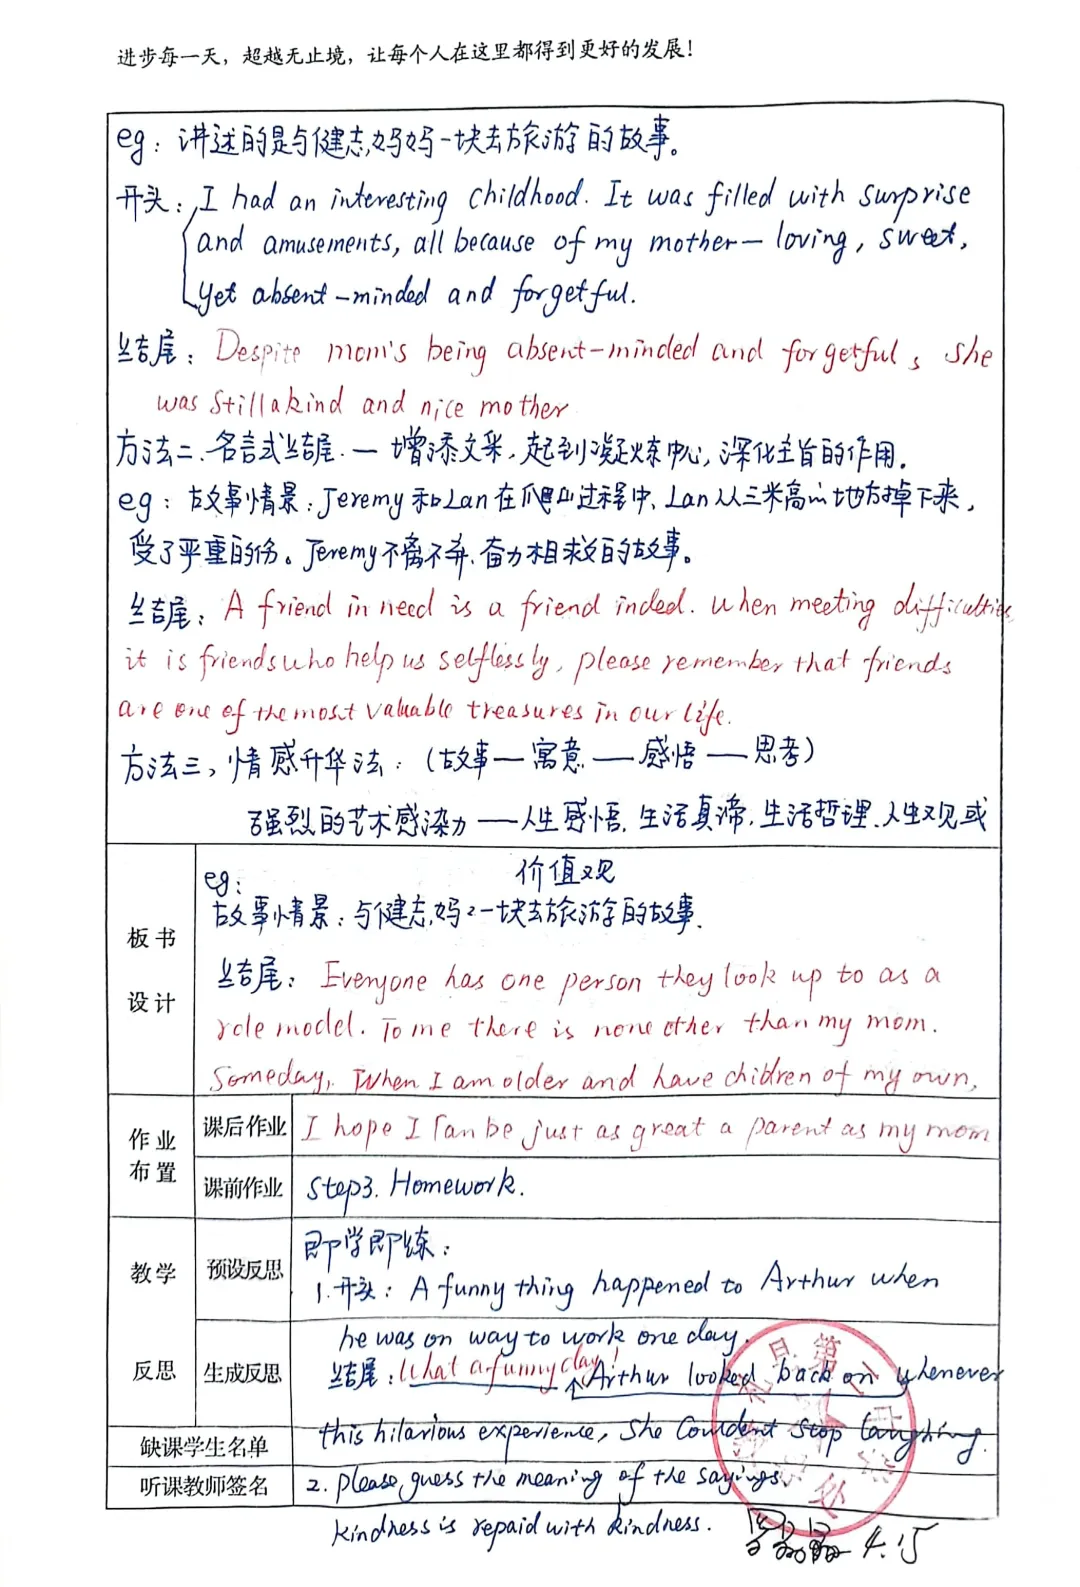 进步每一天，超越无止境，让每个人在这里都得到更好的发展！
eg：讲述的是与健志,妈妈一块去旅游的故事。
开头：I had an interesting childhood. It was filled with surprise
and amusements, all because of my mother— loving, sweet,
yet absent-minded and forgetful.
结尾：Despite mom's being absent-minded and forgetful, she
was still a kind and nice mother
方法二、名言式结尾.— 增添文采,起到凝炼中心,深化主旨的作用。
eg：故事情景：Jeremy和Lan在爬山过程中、Lan从三米高的地方掉下来，
受了严重的伤。Jeremy不离不弃、奋力相救的故事。
结尾：A friend in need is a friend indeed. When meeting difficulties,
it is friends who help us selflessly, please remember that friends
are one of the most valuable treasures in our life.
方法三、情感升华法：(故事—寓意—感悟—思考)
强烈的艺术感染力——人生感悟,生活真谛,生活哲理、人生观或
价值观
eg：
故事情景：与健志,妈2一块去旅游的故事.
板书
设计
结尾：Everyone has one person they look up to as a
role model. To me there is none other than my mom.
Someday, When I am older and have chidren of my own,
作业
布置
课后作业
I hope I can be just as great a parent as my mom
课前作业
Step3. Homework.
教学
反思
预设反思
即学即练：
1.开头：A funny thing happened to Arthur when
he was on way to work one day.
生成反思
结尾：What a funny day! Arthur looked back on whenever
缺课学生名单
this hilarious experience, she couldent stop laughing.
听课教师签名
2. please guess the meaning of the sayings.
kindness is repaid with kindness.
4.15